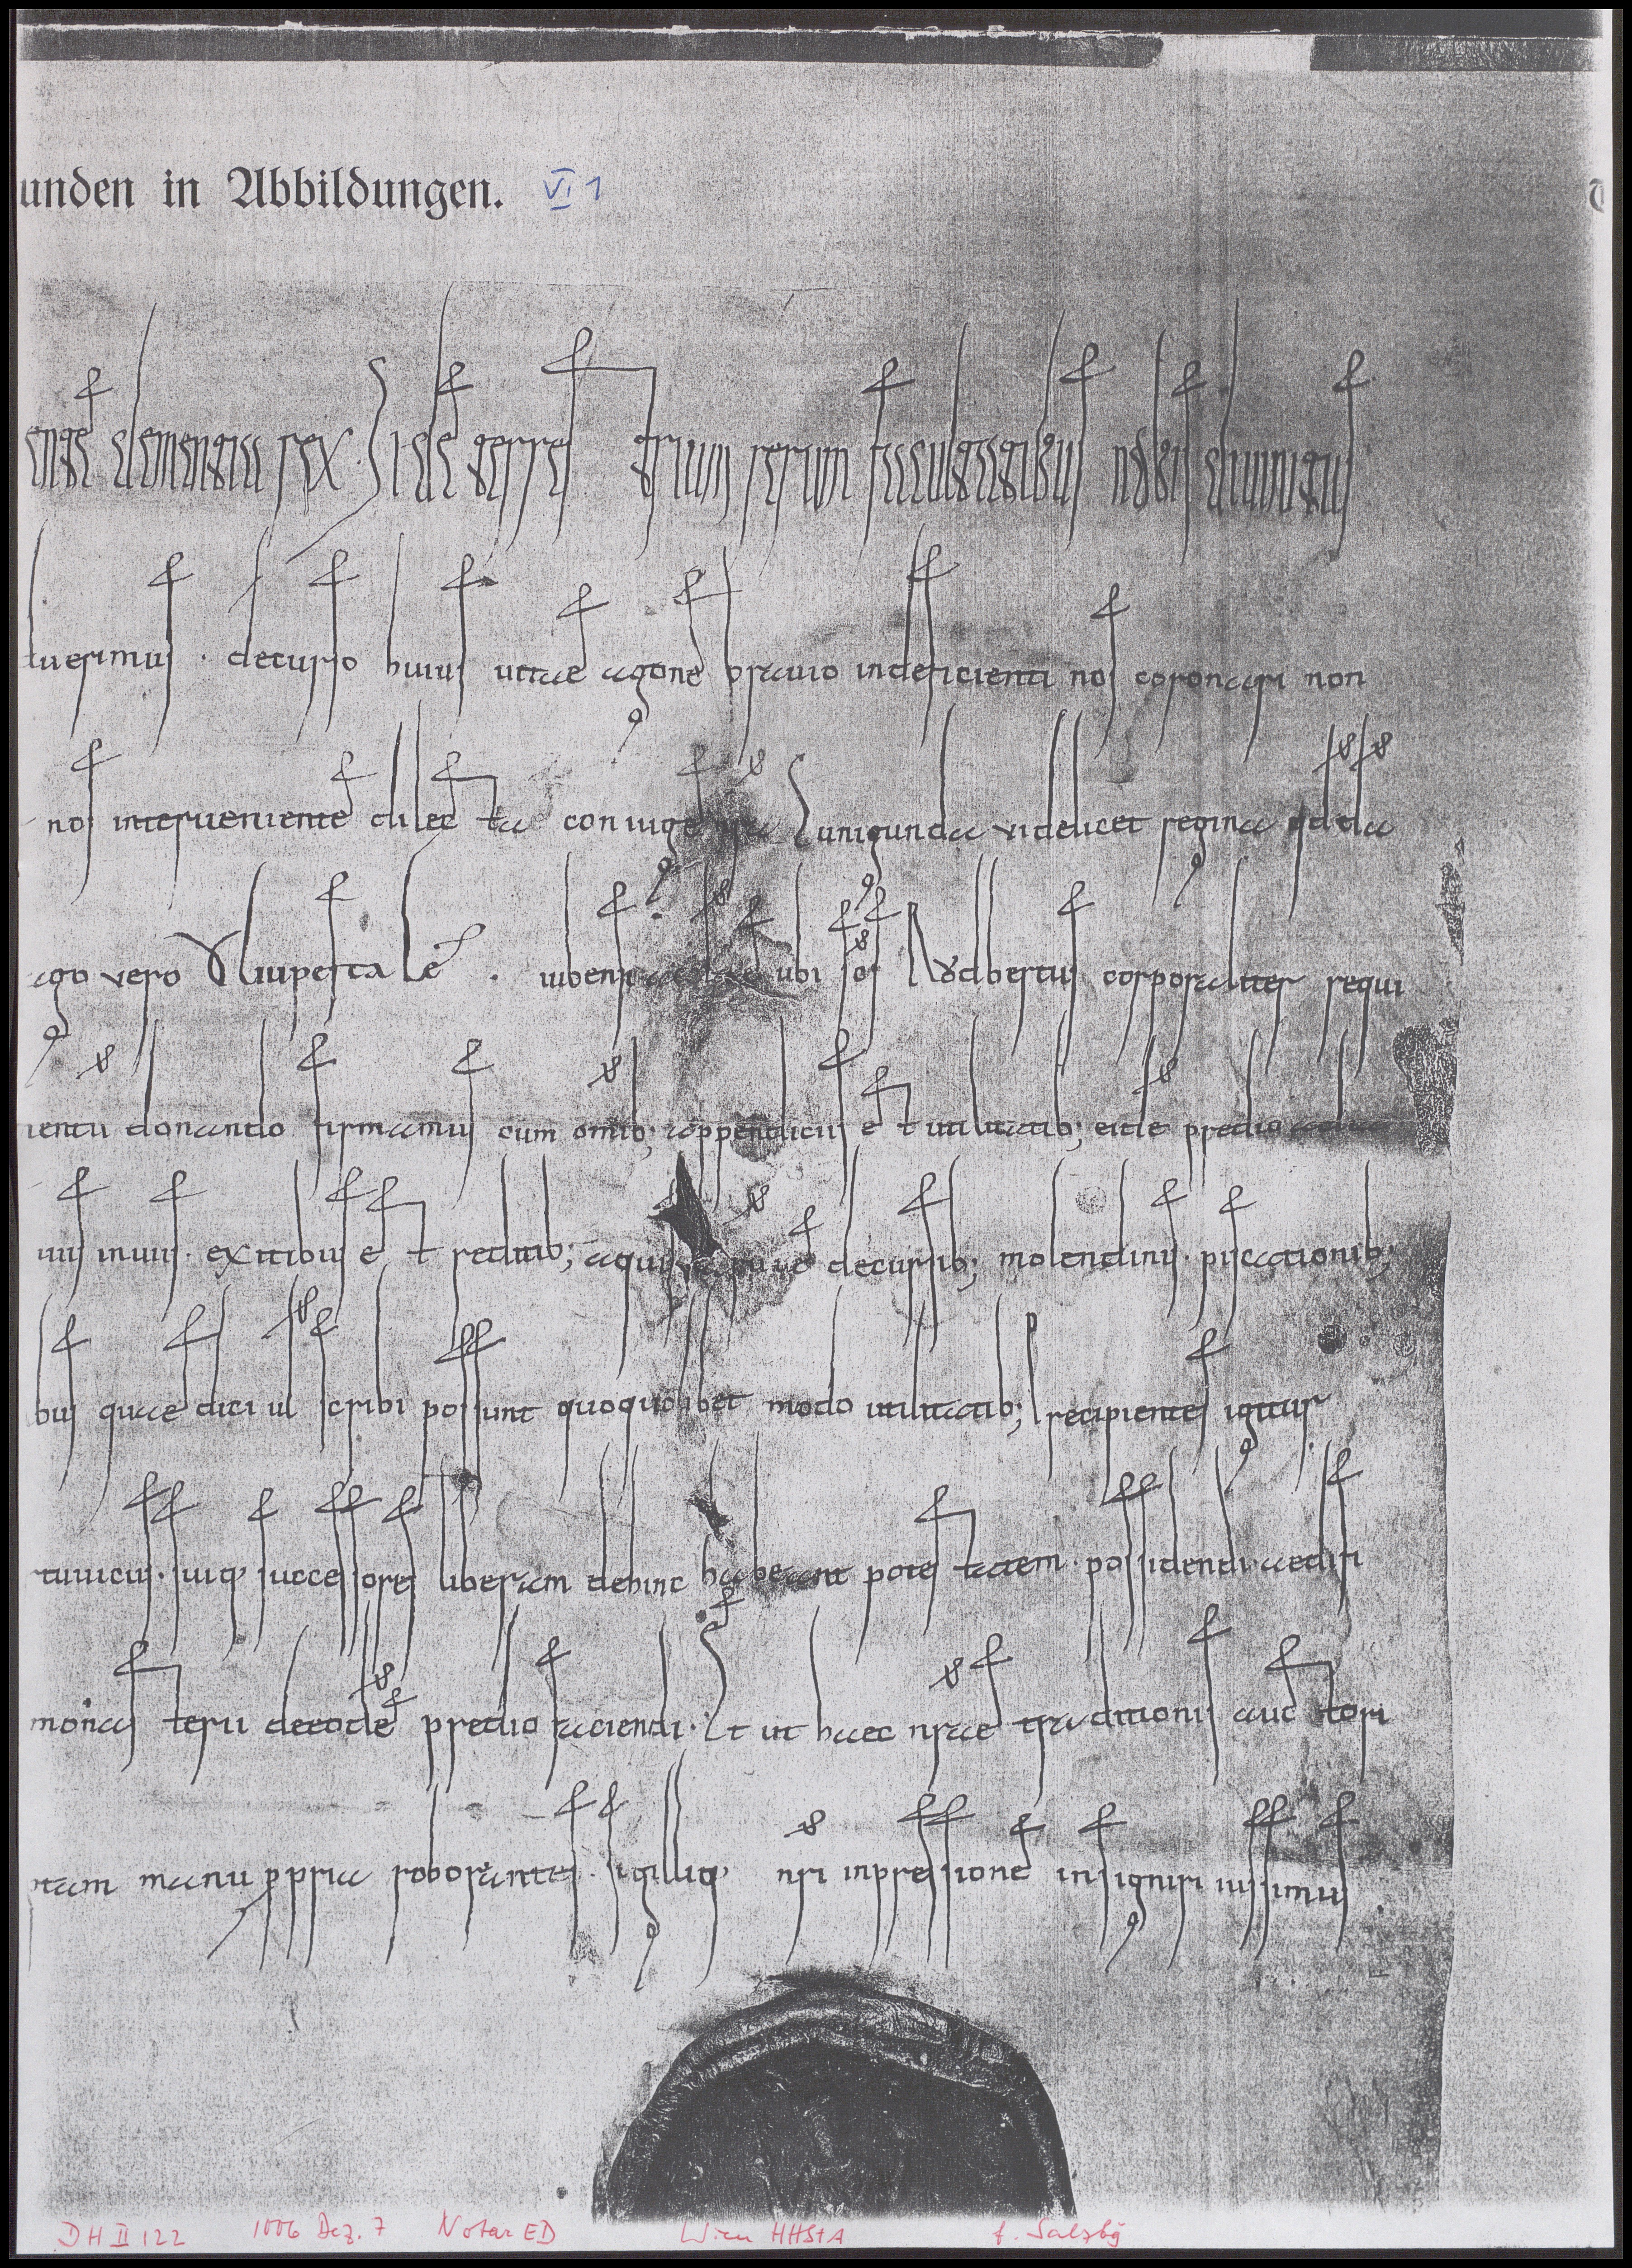 unden in Abbildungen. VI 1
ente clementia rex. Si de terrenarum rerum facultatibus nobis divinitus
tuerimus . decurso huius uitae agone brauio indeficienti nos coronari non
nos interueniente dilecta coniuge nra Cunigunda videlicet regina qdda
ago vero Uuipestale . iubens ubi scs Rŏdbertus corporaliter requi
ientū donando firmamus cum omib; appendiciis et utilitatib; eidē predio
uiis inuiis . exitibus et reditib; aquis decursib; molendinis . piscationib;
bus quae dici ul scribi possunt quoquolibet modo utilitatib; recipientes igitur
tuuicus . suiq; successores liberam dehinc habeant potestatem . possidendi . aedifi
monasterii de eodē predio faciendi . Et ut haec nrae traditionis auctori
ram manu ppria roborantes . sigilliq; nri inpressione insigniri iussimus
DH II 122 1006 Dez. 7 Notar ED Wien HHStA f. Salzbg